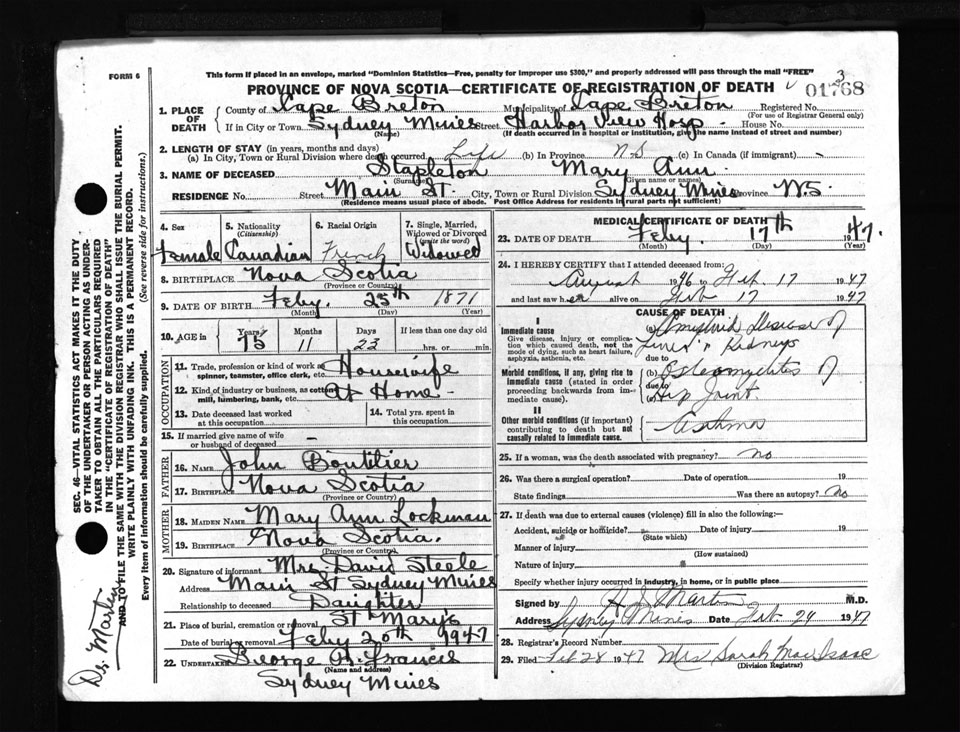 FORM 6
This form if placed in an envelope, marked "Dominion Statistics—Free, penalty for improper use $300," and properly addressed will pass through the mail "FREE"
PROVINCE OF NOVA SCOTIA—CERTIFICATE OF REGISTRATION OF DEATH
3
01768
1. PLACE OF DEATH County of Cape Breton Municipality of Cape Breton Registered No.
(For use of Registrar General only)
If in City or Town Sydney Mines Street Harbor View Hosp. House No.
(Name) (If death occurred in a hospital or institution, give the name instead of street and number)
2. LENGTH OF STAY (in years, months and days)
(a) In City, Town or Rural Division where death occurred Life (b) In Province N.S (c) In Canada (if immigrant) -
3. NAME OF DECEASED Stapleton Mary Ann
(Surname) (Given name or names)
RESIDENCE No. Street Main St. City, Town or Rural Division Sydney Mines Province N.S
(Residence means usual place of abode. Post Office Address for residents in rural parts not sufficient)
4. Sex 5. Nationality (Citizenship) 6. Racial Origin 7. Single, Married, Widowed or Divorced (write the word)
Female Canadian French Widowed
8. BIRTHPLACE Nova Scotia
(Province or Country)
9. DATE OF BIRTH Feby. 25th 1871
(Month) (Day) (Year)
10. AGE in Years Months Days If less than one day old
75 11 23 hrs. or min.
OCCUPATION
11. Trade, profession or kind of work as spinner, teamster, office clerk, etc. Housewife
12. Kind of industry or business, as cotton mill, lumbering, bank, etc. At Home
13. Date deceased last worked at this occupation 14. Total yrs. spent in this occupation
15. If married give name of wife or husband of deceased -
FATHER
16. NAME John Boutilier
17. Birthplace Nova Scotia
(Province or Country)
MOTHER
18. MAIDEN NAME Mary Ann Lockman
19. BIRTHPLACE Nova Scotia.
(Province or Country)
20. Signature of informant Mrs David Steele
Address Main St Sydney Mines
Relationship to deceased Daughter
21. Place of burial, cremation or removal St Mary's
Date of burial or removal Feby 20th 1947
22. UNDERTAKER George Francis
(Name and address)
Sydney Mines
MEDICAL CERTIFICATE OF DEATH
23. DATE OF DEATH Feby. 17th 1947.
(Month) (Day) (Year)
24. I HEREBY CERTIFY that I attended deceased from
August 1946 to Feb. 17 1947
and last saw her alive on Feb 17 1947
CAUSE OF DEATH
I
Immediate cause
Give disease, injury or complication which caused death, not the mode of dying, such as heart failure, asphyxia, asthenia, etc.
(a) Amyloid Disease of
Liver & Kidneys
due to
Morbid conditions, if any, giving rise to immediate cause (stated in order proceeding backwards from immediate cause).
(b) Osteomyelitis of
due to
Hip Joint.
II
Other morbid conditions (if important) contributing to death but not causally related to immediate cause.
Asthma
25. If a woman, was the death associated with pregnancy? no
26. Was there a surgical operation? Date of operation 19
State findings Was there an autopsy? No
27. If death was due to external causes (violence) fill in also the following:—
Accident, suicide or homicide? Date of injury 19
(State which)
Manner of injury
(How sustained)
Nature of injury
Specify whether injury occurred in industry, in home, or in public place
Signed by H J Martin M.D.
Address Sydney Mines Date Feb. 24 1947
28. Registrar's Record Number
29. Filed Feb 28 1947 Mrs Sarah MacIsaac
(Division Registrar)
SEC. 46—VITAL STATISTICS ACT MAKES IT THE DUTY
OF THE UNDERTAKER OR PERSON ACTING AS UNDER-
TAKER TO OBTAIN ALL THE PARTICULARS REQUIRED
IN THE "CERTIFICATE OF REGISTRATION OF DEATH"
AND TO FILE THE SAME WITH THE DIVISION REGISTRAR WHO SHALL ISSUE THE BURIAL PERMIT.
WRITE PLAINLY WITH UNFADING INK. THIS IS A PERMANENT RECORD.
Every item of information should be carefully supplied. (See reverse side for instructions.)
Dr. Martin